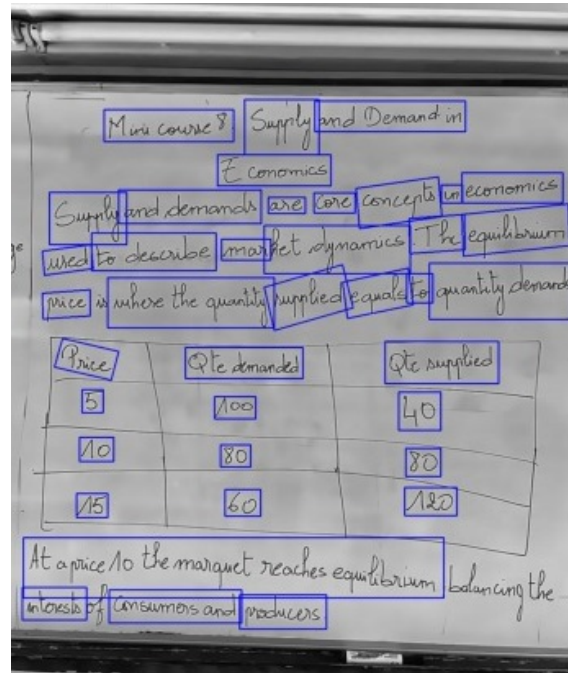 Mini course 8 Supply and Demand in
Economics
Supply and demands are core concepts in economics
used to describe market dynamics. The equilibrium
price is where the quantity supplied equals to quantity demand
Price Qte demanded Qte supplied
5 100 40
10 80 80
15 60 120
At a price 10 the marquet reaches equilibrium balancing the
interests of consumers and producers